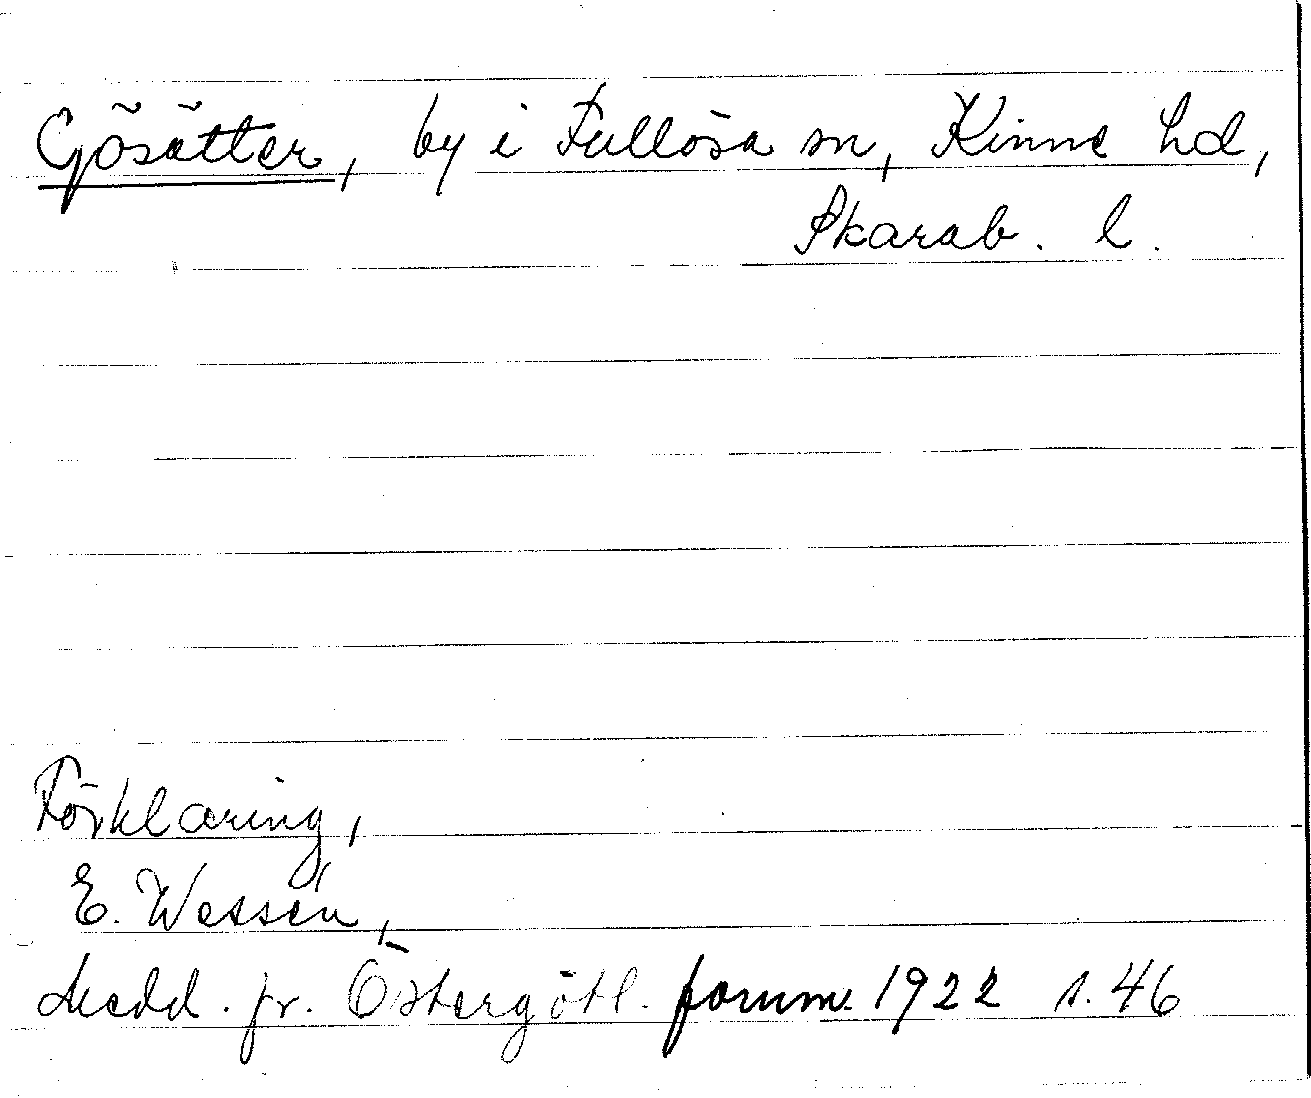 Gösätter, by i Fullösa sn, Kinne hd,
Skarab. l.
Förklaring,
E. Wessén,
Medd. fr. Östergötl. fornm. 1922 s. 46